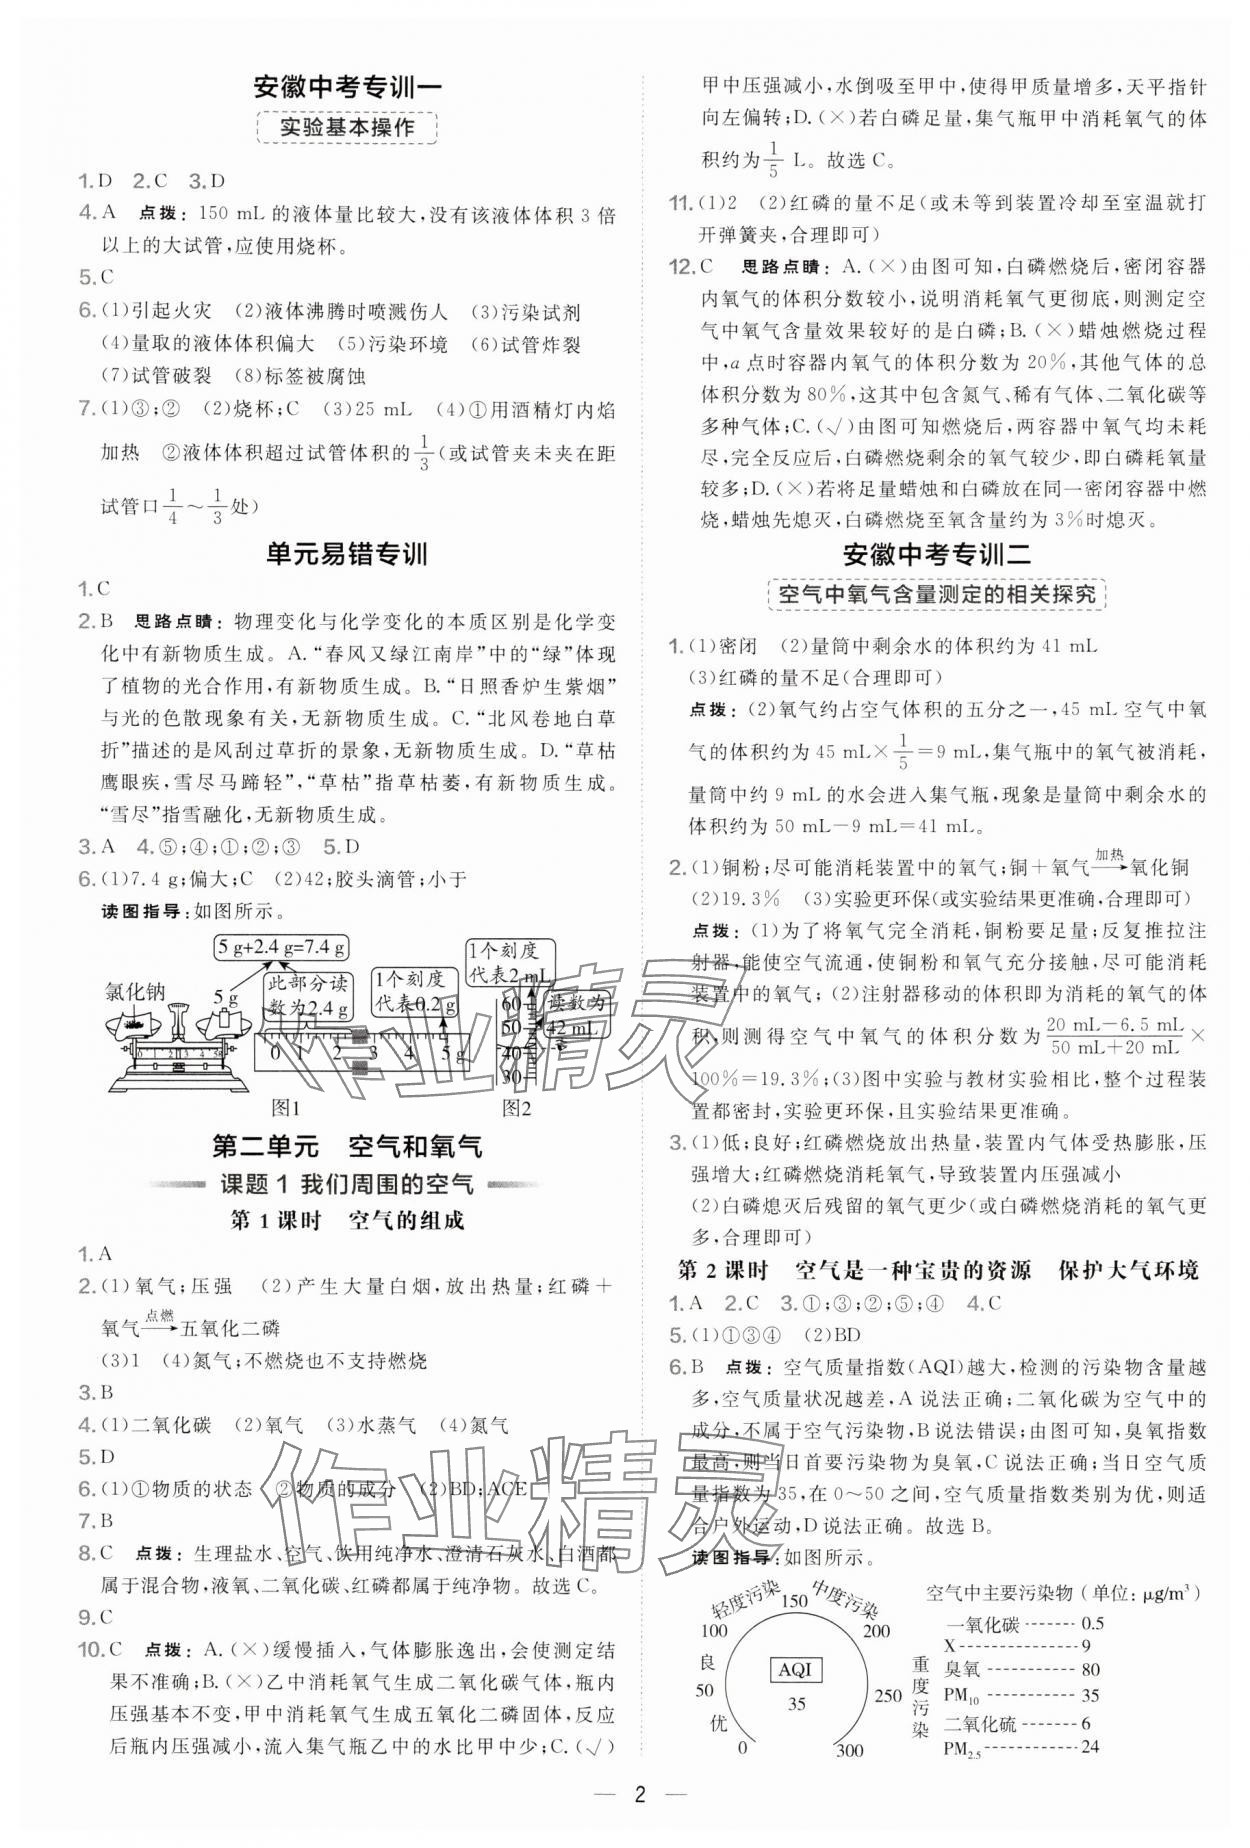 安徽中考专训一
实验基本操作
1.D 2.C 3.D
4.A 点拨:150 mL 的液体量比较大,没有该液体体积 3 倍
以上的大试管,应使用烧杯。
5.C
6.(1)引起火灾 (2)液体沸腾时喷溅伤人 (3)污染试剂
(4)量取的液体体积偏大 (5)污染环境 (6)试管炸裂
(7)试管破裂 (8)标签被腐蚀
7.(1)③;② (2)烧杯;C (3)25 mL (4)①用酒精灯内焰
加热 ②液体体积超过试管体积的1/3(或试管夹未夹在距
试管口1/4～1/3处)
单元易错专训
1.C
2.B 思路点睛:物理变化与化学变化的本质区别是化学变
化中有新物质生成。A.“春风又绿江南岸”中的“绿”体现
了植物的光合作用,有新物质生成。B.“日照香炉生紫烟”
与光的色散现象有关,无新物质生成。C.“北风卷地白草
折”描述的是风刮过草折的景象,无新物质生成。D.“草枯
鹰眼疾,雪尽马蹄轻”,“草枯”指草枯萎,有新物质生成。
“雪尽”指雪融化,无新物质生成。
3.A 4.⑤;④;①;②;③ 5.D
6.(1)7.4 g;偏大;C (2)42;胶头滴管;小于
读图指导:如图所示。
5 g+2.4 g=7.4 g
氯化钠
5 g
此部分读
数为2.4 g
1个刻度
代表0.2 g
0 1 2 3 4 5 g
1个刻度
代表2 mL
60
50
40
30
读数为
42 mL
图1
图2
第二单元 空气和氧气
课题 1 我们周围的空气
第 1 课时 空气的组成
1.A
2.(1)氧气;压强 (2)产生大量白烟,放出热量;红磷＋
氧气 点燃→ 五氧化二磷
(3)1 (4)氮气;不燃烧也不支持燃烧
3.B
4.(1)二氧化碳 (2)氧气 (3)水蒸气 (4)氮气
5.D
6.(1)①物质的状态 ②物质的成分 (2)BD;ACE
7.B
8.C 点拨:生理盐水、空气、饮用纯净水、澄清石灰水、白酒都
属于混合物,液氧、二氧化碳、红磷都属于纯净物。故选 C。
9.C
10.C 点拨:A.(×)缓慢插入,气体膨胀逸出,会使测定结
果不准确;B.(×)乙中消耗氧气生成二氧化碳气体,瓶内
压强基本不变,甲中消耗氧气生成五氧化二磷固体,反应
后瓶内压强减小,流入集气瓶乙中的水比甲中少;C.(√)
甲中压强减小,水倒吸至甲中,使得甲质量增多,天平指针
向左偏转;D.(×)若白磷足量,集气瓶甲中消耗氧气的体
积约为1/5 L。故选 C。
11.(1)2 (2)红磷的量不足(或未等到装置冷却至室温就打
开弹簧夹,合理即可)
12.C 思路点睛:A.(×)由图可知,白磷燃烧后,密闭容器
内氧气的体积分数较小,说明消耗氧气更彻底,则测定空
气中氧气含量效果较好的是白磷;B.(×)蜡烛燃烧过程
中,a 点时容器内氧气的体积分数为 20%,其他气体的总
体积分数为 80%,这其中包含氮气、稀有气体、二氧化碳等
多种气体;C.(√)由图可知燃烧后,两容器中氧气均未耗
尽,完全反应后,白磷燃烧剩余的氧气较少,即白磷耗氧量
较多;D.(×)若将足量蜡烛和白磷放在同一密闭容器中燃
烧,蜡烛先熄灭,白磷燃烧至氧含量约为 3%时熄灭。
安徽中考专训二
空气中氧气含量测定的相关探究
1.(1)密闭 (2)量筒中剩余水的体积约为 41 mL
(3)红磷的量不足(合理即可)
点拨:(2)氧气约占空气体积的五分之一,45 mL 空气中氧
气的体积约为 45 mL×1/5＝9 mL,集气瓶中的氧气被消耗,
量筒中约 9 mL 的水会进入集气瓶,现象是量筒中剩余水的
体积约为 50 mL－9 mL＝41 mL。
2.(1)铜粉;尽可能消耗装置中的氧气;铜＋氧气 加热→ 氧化铜
(2)19.3% (3)实验更环保(或实验结果更准确,合理即可)
点拨:(1)为了将氧气完全消耗,铜粉要足量;反复推拉注
射器,能使空气流通,使铜粉和氧气充分接触,尽可能消耗
装置中的氧气;(2)注射器移动的体积即为消耗的氧气的体
积,则测得空气中氧气的体积分数为(20 mL－6.5 mL)/(50 mL＋20 mL)×
100%＝19.3%;(3)图中实验与教材实验相比,整个过程装
置都密封,实验更环保,且实验结果更准确。
3.(1)低;良好;红磷燃烧放出热量,装置内气体受热膨胀,压
强增大;红磷燃烧消耗氧气,导致装置内压强减小
(2)白磷熄灭后残留的氧气更少(或白磷燃烧消耗的氧气更
多,合理即可)
第 2 课时 空气是一种宝贵的资源 保护大气环境
1.A 2.C 3.①;③;②;⑤;④ 4.C
5.(1)①③④ (2)BD
6.B 点拨:空气质量指数(AQI)越大,检测的污染物含量越
多,空气质量状况越差,A 说法正确;二氧化碳为空气中的
成分,不属于空气污染物,B 说法错误;由图可知,臭氧指数
最高,则当日首要污染物为臭氧,C 说法正确;当日空气质
量指数为 35,在 0～50 之间,空气质量指数类别为优,则适
合户外运动,D 说法正确。故选 B。
读图指导:如图所示。
轻度污染 150 中度污染
100 200
良 AQI 重度污染
50 35 250
优
0 300
空气中主要污染物（单位: μg/m³）
一氧化碳 0.5
X 9
臭氧 80
PM₁₀ 35
二氧化硫 6
PM₂.₅ 24
作业精灵
作业精灵
2